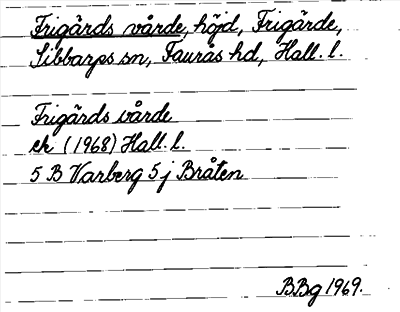 Frigärds vårde, höjd, Frigärde,
Sibbarps sn, Faurås hd, Hall. l.
Frigärds vårde
ek (1968) Hall. l.
5 B Varberg 5 j Bråten
BBg 1969.